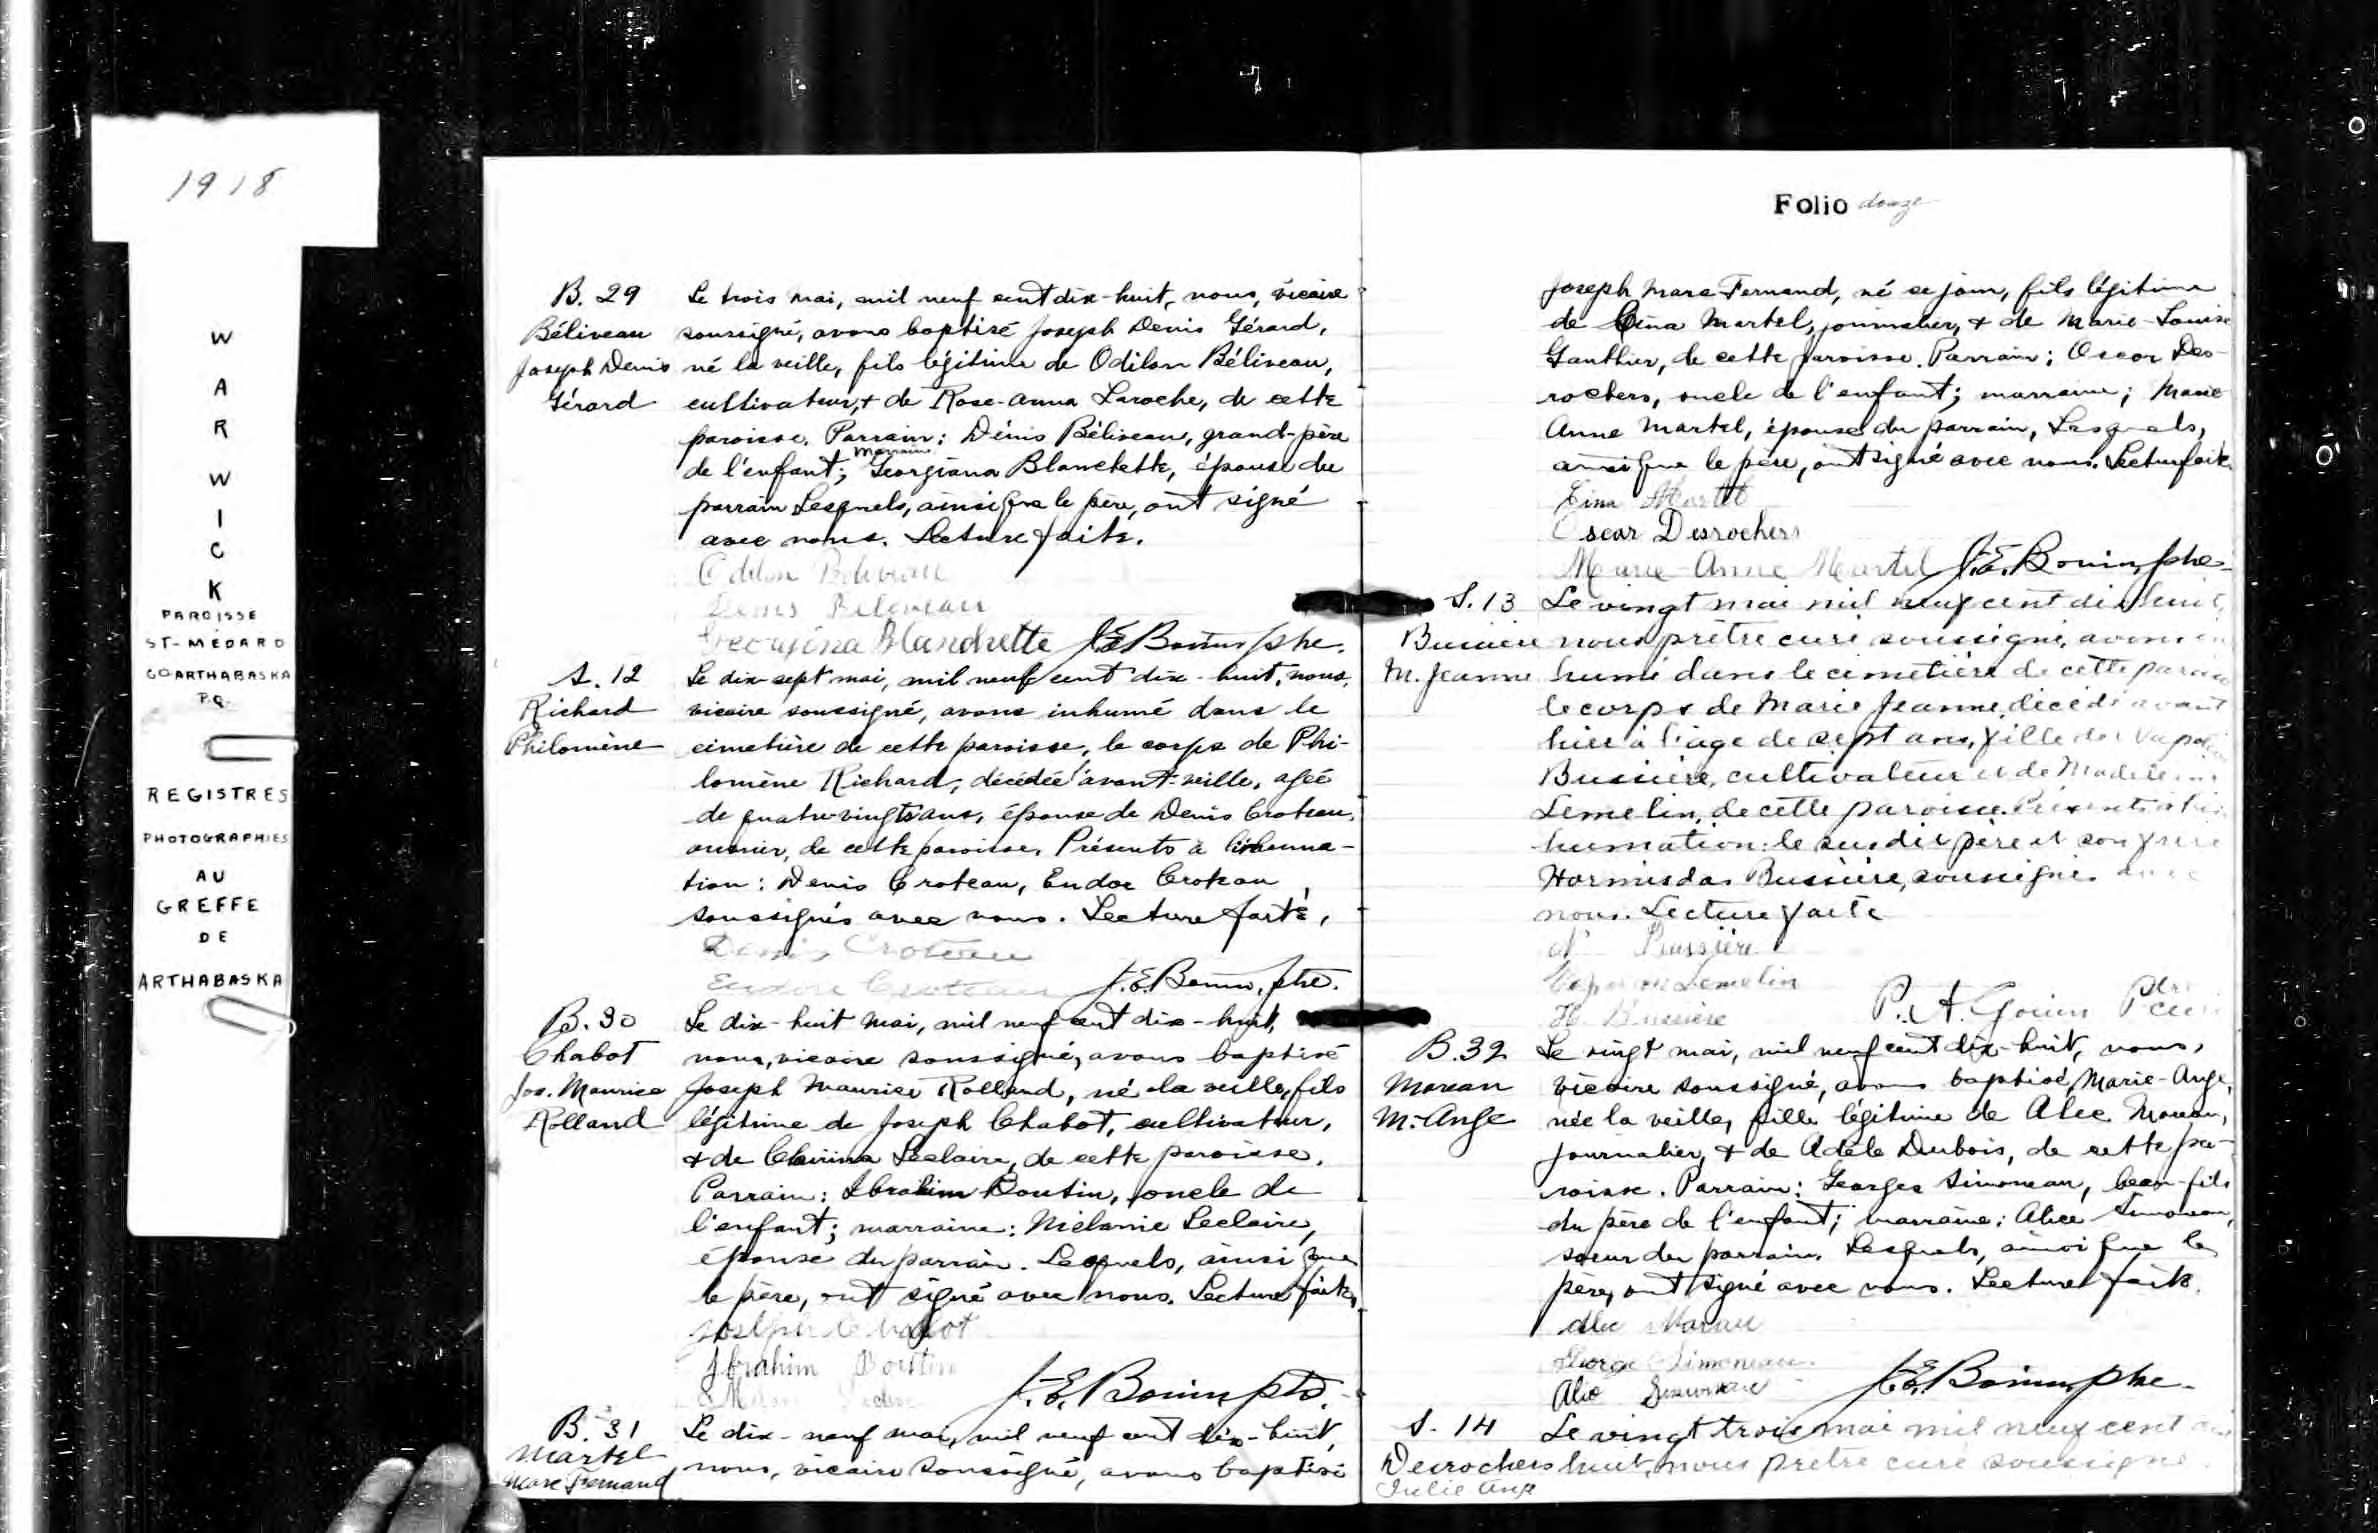 1918
W
A
R
W
I
C
K
PAROISSE
ST-MÉDARD
CO ARTHABASKA
P.Q.
REGISTRES
PHOTOGRAPHIES
AU
GREFFE
DE
ARTHABASKA
B. 29
Béliveau
Joseph Denis
Gérard
Le trois mai, mil neuf cent dix-huit, nous, vicaire
soussigné, avons baptisé Joseph Denis Gérard,
né la veille, fils légitime de Odilon Béliveau,
cultivateur, & de Rose-Anna Laroche, de cette
paroisse. Parrain: Dénis Béliveau, grand-père
de l'enfant; marraine Georgiana Blanchette, épouse du
parrain Lesquels, ainsi que le père, ont signé
avec nous. Lecture faite.
Odilon Béliveau
Denis Beliveau
Georgina Blanchette J.E. Bouin, ptre.
S. 12
Richard
Philomène
Le dix-sept mai, mil neuf cent dix-huit, nous,
vicaire soussigné, avons inhumé dans le
cimetière de cette paroisse, le corps de Phi-
lomène Richard, décédée l'avant-veille, agée
de quatre-vingts ans, épouse de Denis Croteau,
de cette paroisse. Présents à l'inhuma-
tion: Denis Croteau, Eudor Croteau
soussignés avec nous. Lecture faite,
Denis Croteau
Eudore Croteau J.E. Bouin, ptre.
B. 30
Chabot
Jos. Maurice
Rolland
Le dix-huit mai, mil neuf cent dix-huit,
nous, vicaire soussigné, avons baptisé
Joseph Maurice Rolland, né la veille, fils
légitime de Joseph Chabot, cultivateur,
& de Leclaire, de cette paroisse.
Parrain: Ibrahim Boutin, oncle de
l'enfant; marraine: Mélanie Leclaire,
épouse du parrain. Lesquels, ainsi que
le père, ont signé avec nous. Lecture faite.
Joseph Chabot
Ibrahim Boutin
J.E. Bouin, ptre.
B. 31
Martel
Marc Fernand
Le dix-neuf mai, mil neuf cent dix-huit,
nous, vicaire soussigné, avons baptisé
Folio douze
Joseph Marc Fernand, né ce jour, fils légitime
de Martel, journalier, & de Marie-Louise
Gauthier, de cette paroisse. Parrain: Oscar Des-
rochers, oncle de l'enfant; marraine; Marie
Anne Martel, épouse du parrain, Lesquels,
ainsi que le père, ont signé avec nous. Lecture faite.
Martel
Oscar Desrochers
Marie-Anne Martel J.E. Bouin, ptre.
S. 13
Bussière
M. Jeanne
Le vingt mai mil neuf cent dix huit,
nous prêtre curé soussigné, avons in
humé dans le cimetière de cette paroisse
le corps de Marie Jeanne, décédé avant
hier à l'âge de sept ans, fille de
Bussière, cultivateur et de Madeleine
Lemelin, de cette paroisse. Présents à l'in
humation: le susdit père et son frère
Hormisdas Bussière, soussignés avec
nous. Lecture faite
N Bussière
Napoleon Lemelin
H. Bussière P. A. Gouin Ptre curé
B. 32
Moreau
M.-Ange
Le vingt mai, mil neuf cent dix-huit, nous,
vicaire soussigné, avons baptisé, Marie-Ange,
née la veille, fille légitime de Alec Moreau,
journalier, & de Adèle Dubois, de cette pa-
roisse. Parrain: Georges Simoneau, beau-fils
du père de l'enfant; marraine: Alice Simoneau,
soeur du parrain. Lesquels, ainsi que le
père, ont signé avec nous. Lecture faite.
Alec Morau
George Simoneau
Alice Simoneau J.E. Bouin, ptre.
S. 14
Desrochers
Julie Ange
Le vingt trois mai mil neuf cent dix
huit, nous prêtre curé soussigné